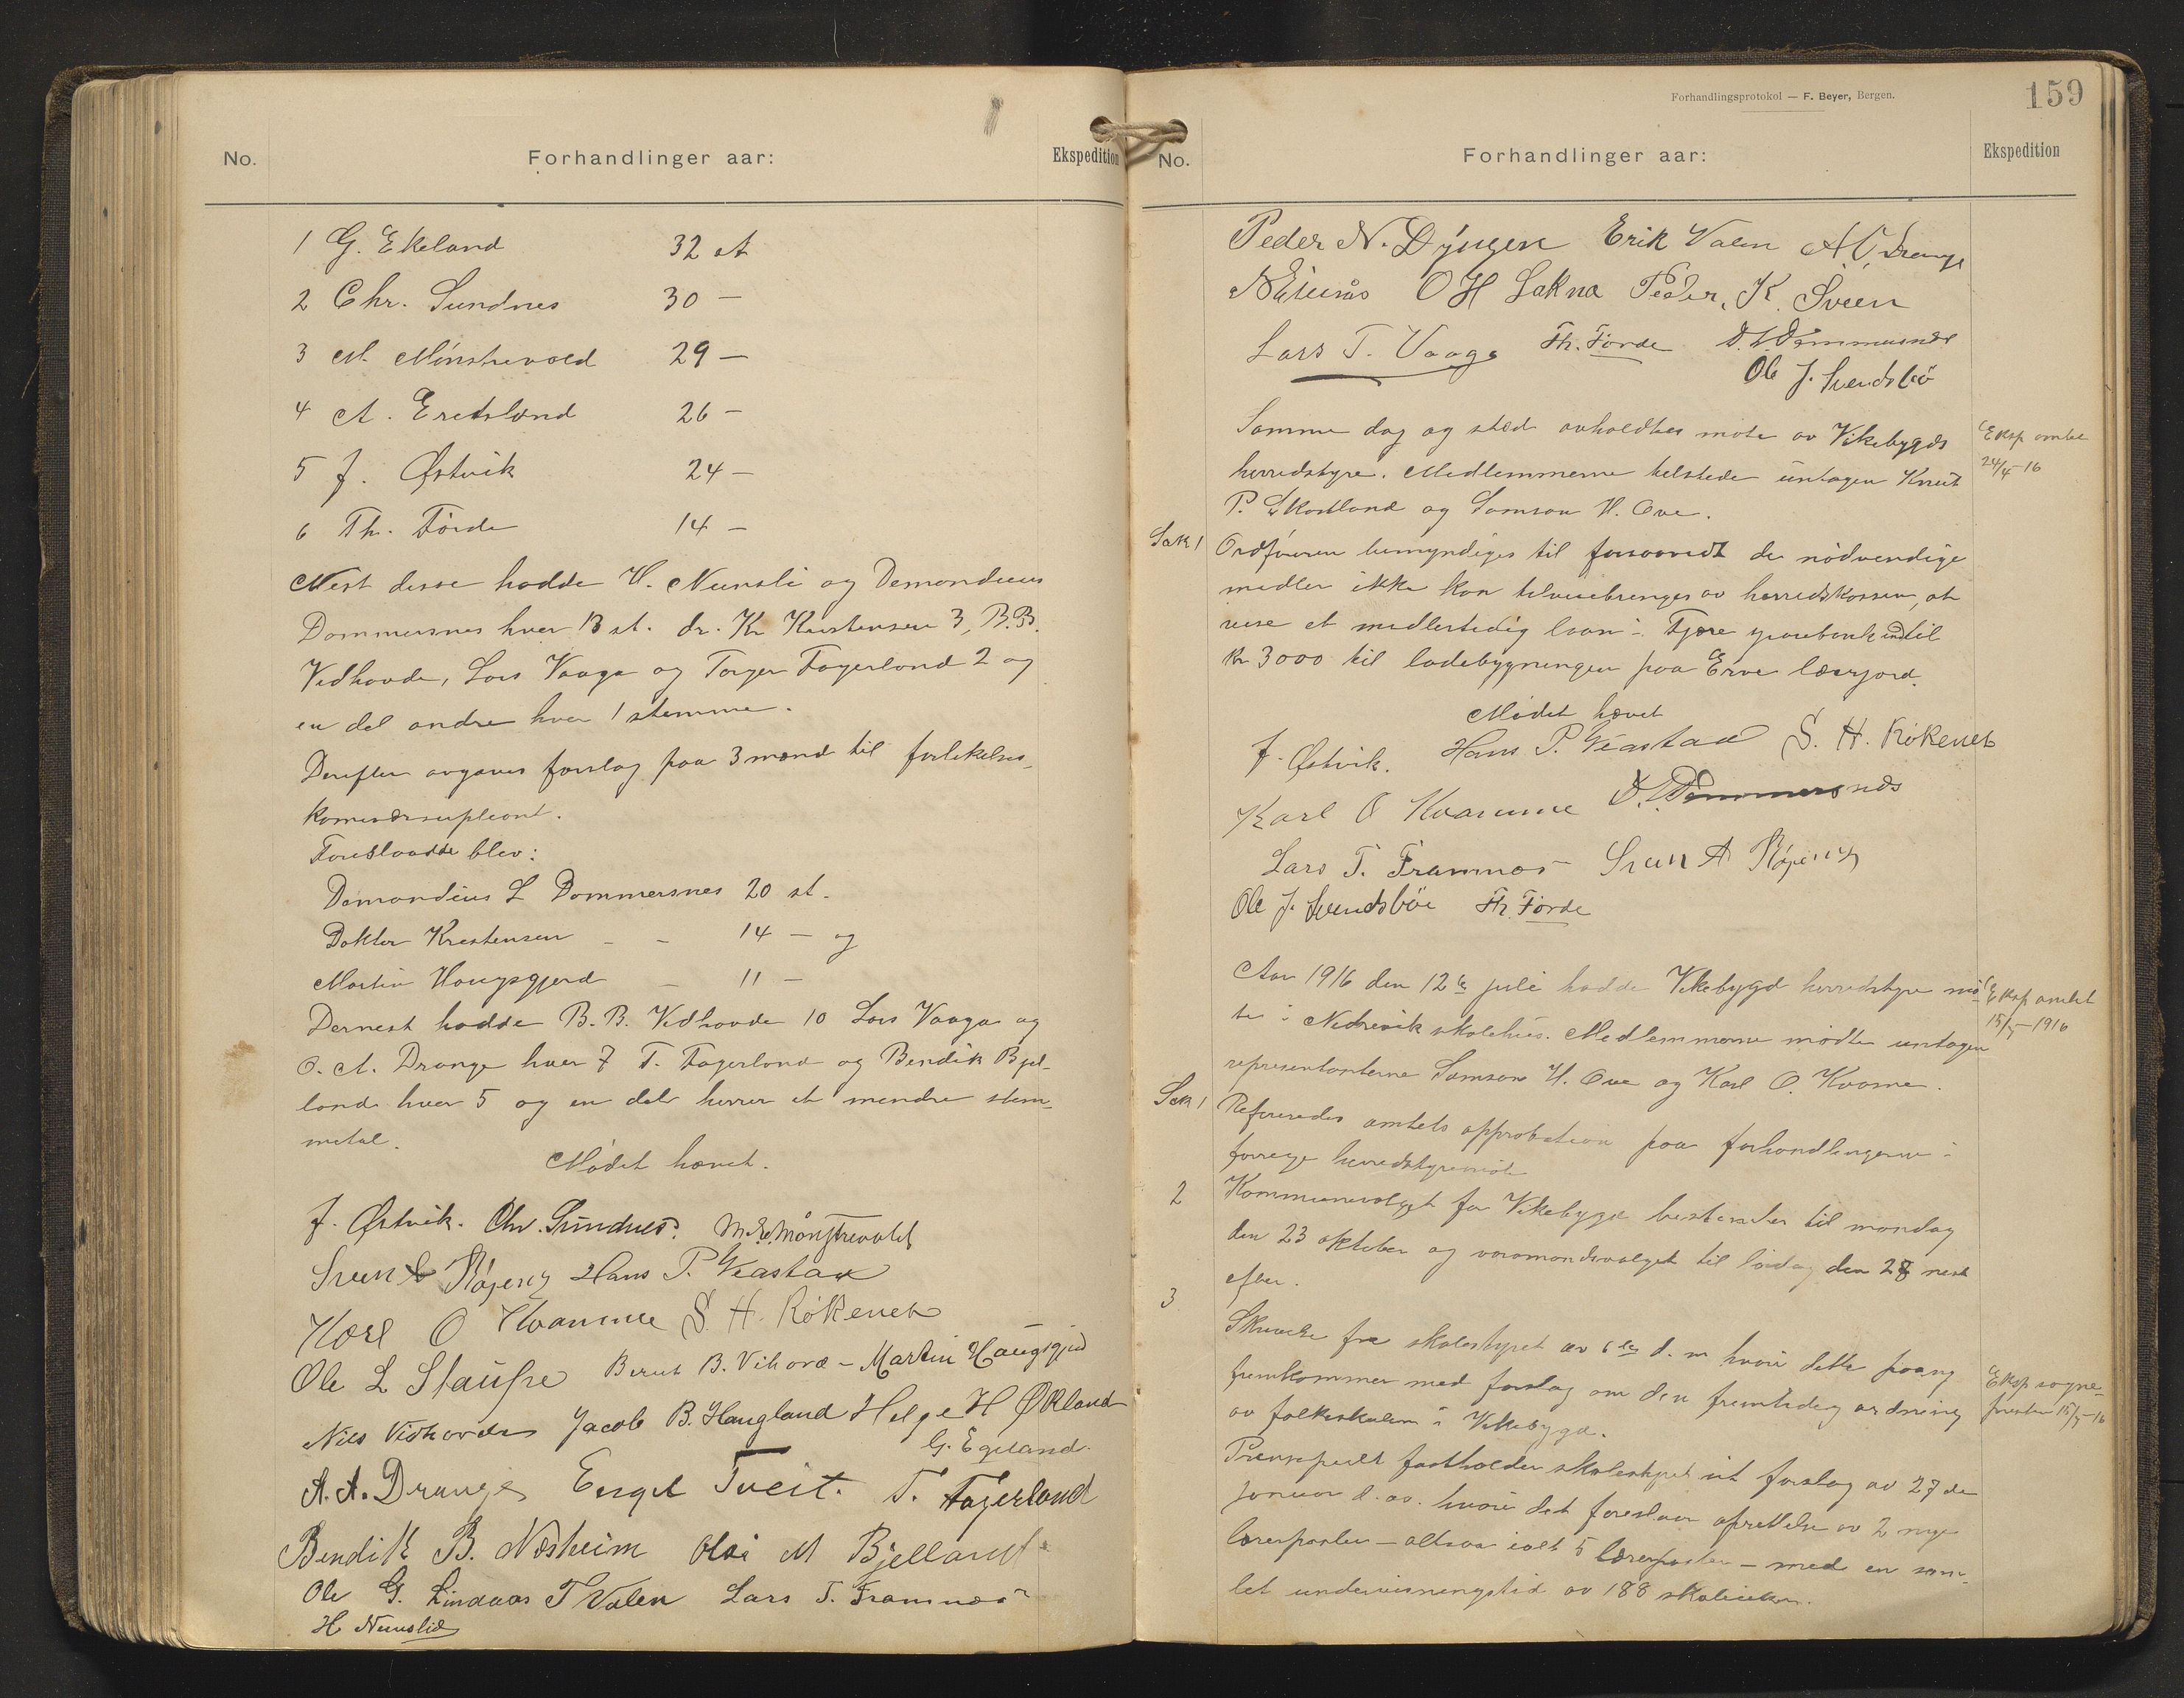 No. Forhandlinger aar: Ekspedition
1 G. Ekeland 32 st
2 Chr. Sundnes 30 —
3 M. Mönstrevold 29 —
4 A. Eretsland 26 —
5 J. Østvik 24 —
6 Th. Förde 14 —
Nest disse hadde H. Neunsli og Demondeus
Dommersnes hver 13 st. dr. Kr Kristensen 3, B.B.
Vedhovde, Lars Vaaga og Torger Fagerland 2 og
en del andre hver 1 stemme.
Derefter avgaves forslag paa 3 mænd til forlikelses-
Foreslaadde blev:
Demondius L Dommersnes 20 st.
Doktor Krestensen - - 14 — og
Martin Haugsgjerd - 11 —
Dernest hadde B.B. Vedhovde 10 Lars Vaaga og
O. A. Drange hver 7 T. Fagerland og Bendik Bjel-
land hver 5 og en del herrer et mendre stem-
metal.
Mödet hævet.
J. Østvik. Chr. Sundnes. M. E. Mönstrevold
Sven A Röjeng Hans P. Veastad
Karl O Kvamme S. H. Rökenes
Ole L Staupe Berent B. Vihovd - Martin Haugsgjerd
Nils Vidhovde Jacob B. Haugland Helge H Økland
G. Egeland.
A. A. Drange Engel Tveit. T. Fagerland
Bendik B. Næsheim Olai M Bjelland
Ole G. Lindaas T Valen Lars T. Framnes
H Neunslid
Forhandlingsprotokol — F. Beyer, Bergen.
159
No. Forhandlinger aar: Ekspedition
Peder N. Dyngen Erik Valen A O Drange
O H Lakna Peder K. Sveen
Lars T. Vaage Th. Förde D. L. Dommersnes
Ole J. Svendsböe
Samme dag og sted avholdtes möte av Vikebygds
herredstyre. Medlemmerne tilstede untagen Knut
P. Skartland og Samson H. Ove.
Eksp amtet
24/4-16
Sak 1 Ordföreren bemyndiges til forsaavidt de nödvendige
midler ikke kan tilveiebringes av herredskassen, at
reise et midlertidig laan i Fjære sparebank indtil
Kr 3000 til ladebygningen paa Erve lærerjord.
Mödet hævet
J. Østvik. Hans P. Veastad S. H. Rökenes
Karl O Kvamme D. L. Dommersnes
Lars T. Framnes Sven A Röjeng
Ole J. Svendsböe Th. Förde
Aar 1916 den 12te juli hadde Vikebygd herredstyre mö-
te i Nedrevik skolehus. Medlemmerne mödte untagen
representanterne Samson H. Ove og Karl O. Kvame.
Eksp amtet
15/7-1916
Sak 1 Refereredes amtets approbation paa forhandlingerne i
forrige herredstyremöte
2 Kommunevalget for Vikebygd bestemtes til mandag
den 23 oktober og varamandsvalget til lördag den 28 nest
efter.
3 Skrivelse fra skolestyret av 6te d. m hvori dette paany
fremkommer med forslag om den fremtidig ordning
av folkeskolen i Vikebygd.
Eksp sogne-
presten 15/7-16
Prensipielt fastholder skolestyret sit forslag av 27de
januar d. aa. hvori det foreslaar oprettelse av 2 nye
lærerposter — altsaa ialt 5 lærerposter — med en sam-
let undervisningstid av 188 skoleuker.